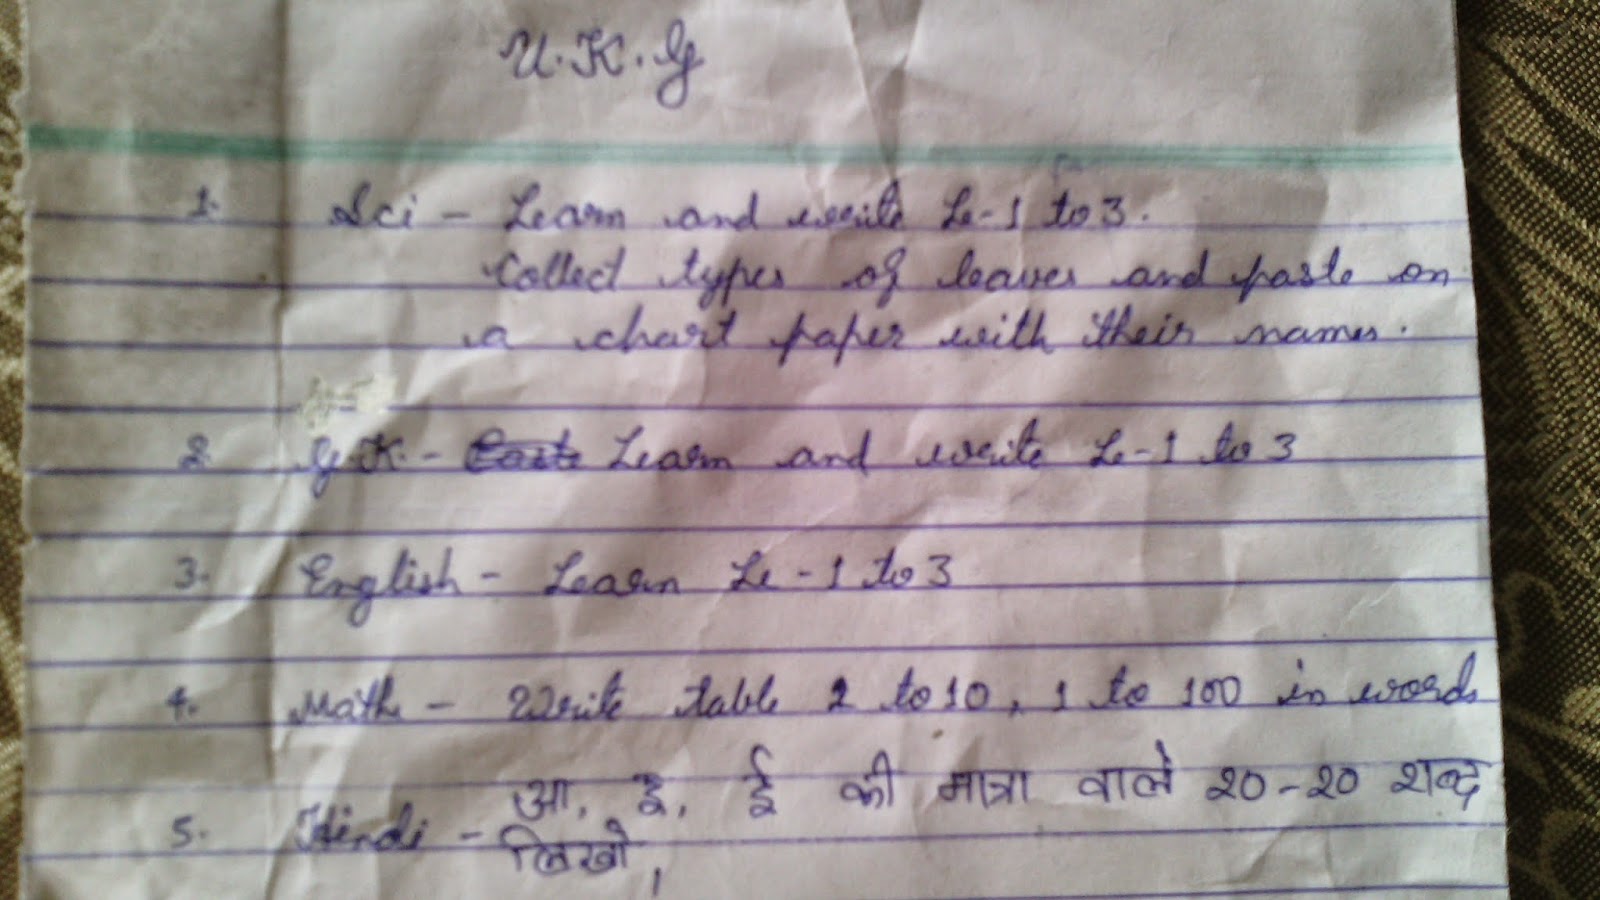 U.K.G
1. Sci - Learn and write Le-1 to 3.
Collect types of leaves and paste on
a chart paper with their names.
2. G.K. - Learn and write Le-1 to 3
3. English - Learn Le-1 to 3
4. Math - Write table 2 to 10, 1 to 100 in words
5. Hindi - आ, इ, ई की मात्रा वाले 20-20 शब्द
लिखो,